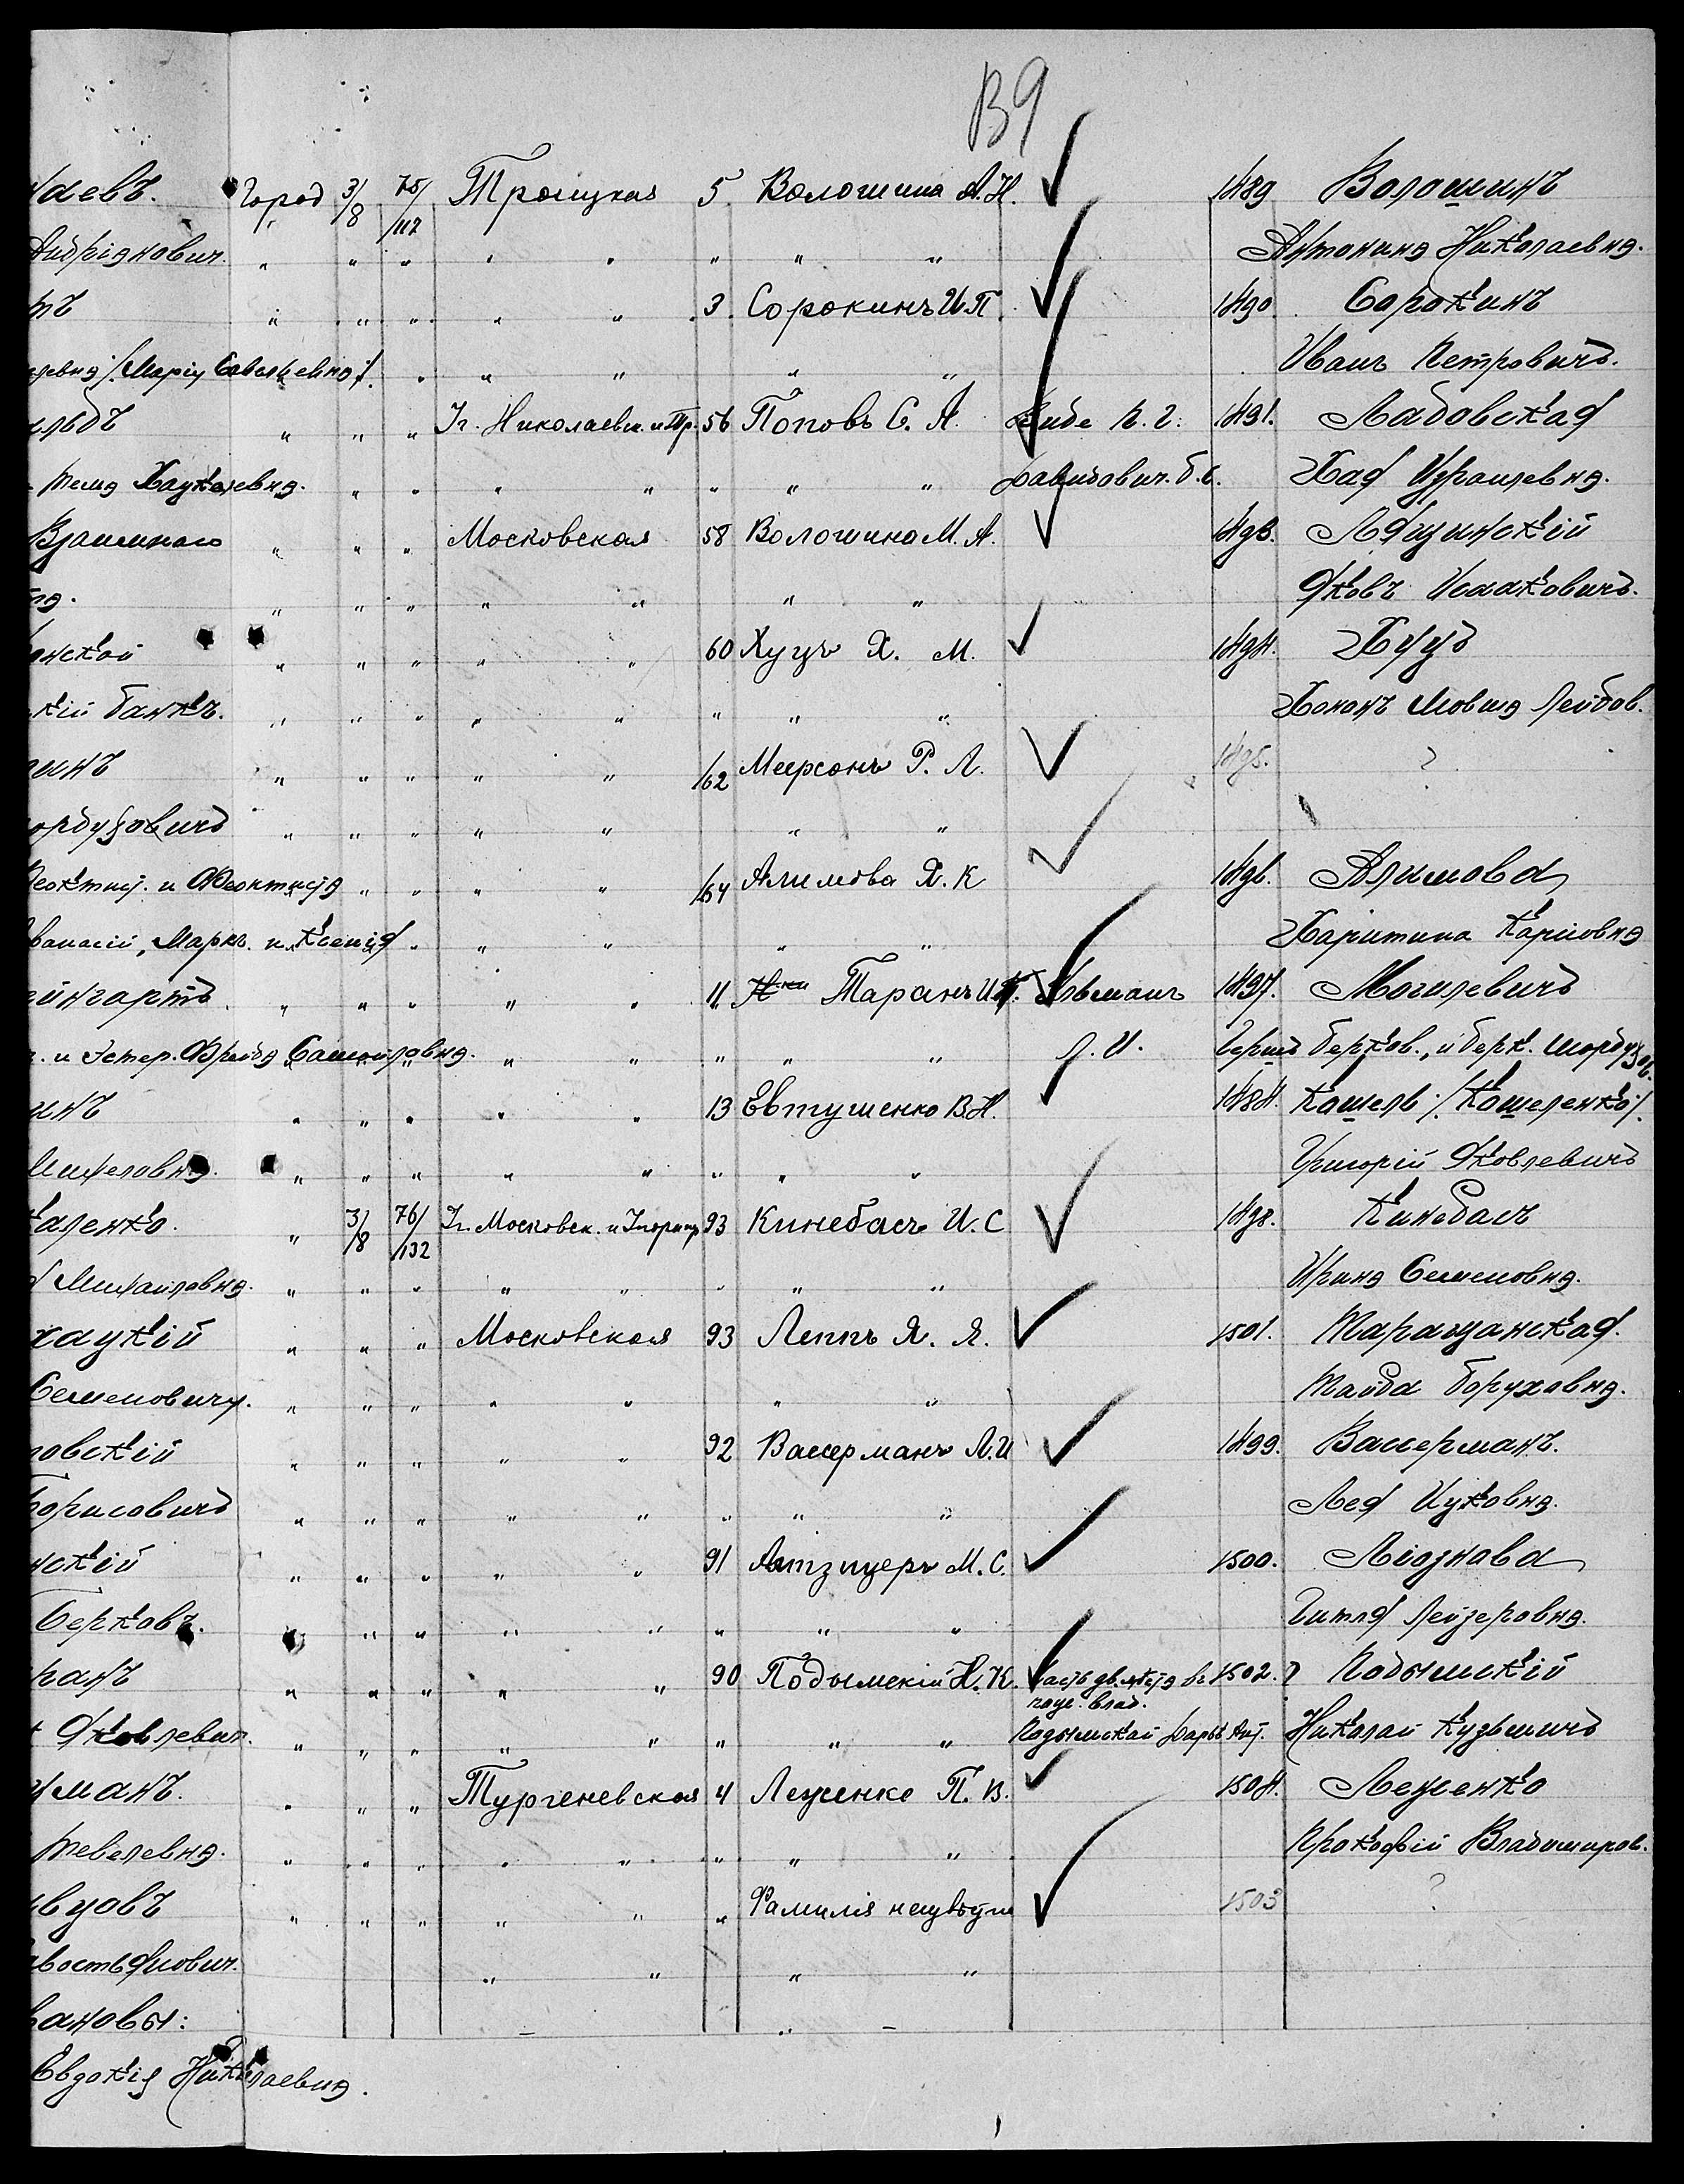 В9
наевъ. Город 3/8 75/112 Троицкая 5 Волошина А.Н. 1489 Волошинъ
Андріановичъ. " " " " " " " " Антонина Николаевна.
тъ " " " " " 3. Сорокинъ И.П. 1490 Сорокинъ
левна /Марія Савельевна/. " " " " " " Иванъ Петровичъ.
льдъ " " " Уг. Николаевск. и Тр. 56 Поповъ С. А. 1491. Ладовская
" " " " " " " " Давидович. Хая Израилевна.
" " " Московская 58 Волошина М. А. 1493. Лящинскій
" " " " " " " Яковъ Исааковичъ.
нской " " " " " 60 Хуцъ Х. М. 1494. Хуцъ
кій банкъ. " " " " " " " " Хононъ Мовша Лейбов.
инъ " " " " " /62 Меерсонъ Р. Л. 1495. ?
ордуховичъ " " " " " " "
и Феоктиста " " " " /64 Алимова Х. К 1496. Алимова
Афанасій, Маркъ и Ксенія " " " " " Харитина Карповна
ейнгартъ. " " " " " 11 Таранъ И. 1497. Могилевичъ
и Эстер. Фрейда Самойловна. " " " " " Л. И. Гершъ Берков., и Берк. Мордухов.
инъ " " " " " 13 Евтушенко В.Н. 1484. Кошель /Кошеленко/.
" " " " " " " " Григорій Яковлевичъ
каленко. " 3/8 76/132 Уг. Московск. и 93 Кинебасъ И. С 1498. Кинебасъ
Михайловна. " " " " " " " " Ирина Семеновна.
хацкій " " " Московская 93 Леппъ Я. Я. 1501. Таращанская.
Семеновичу. " " " " " " " Тайба Боруховна.
новскій " " " " " 92 Вассерманъ Л.И 1499. Вассерманъ.
Борисовичъ " " " " " " " " Лея Ицковна.
нскій " " " " " 91 Атзицеръ М.С. 1500. Ліознова
Берковъ. " " " " " " " " Гитля Лейзеровна.
манъ " " " " " 90 Подымскій Н.К. Часть дв. мѣста въ 1502. Подымскій
влад.
Яковлевич. " " " " " " " " Подымской Николай Кузьмичъ
манъ. " " " Тургеневская 4 Лещенко П. В. 1504. Лещенко
Тевелевна. " " " " " " " " Прокофій Владиміров.
вцовъ " " " " " " Фамилія неизвѣстн 1503 ?
востьяновичъ. " " " "
вановы: – " –
Евдокія Николаевна.